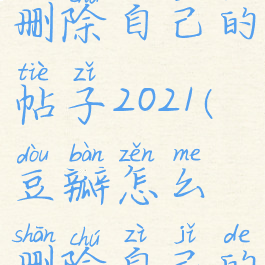 删除自己的
tiè zǐ
帖子2021(
dòu bàn zěn me
豆瓣怎么
shān chú zì jǐ de
删除自己的